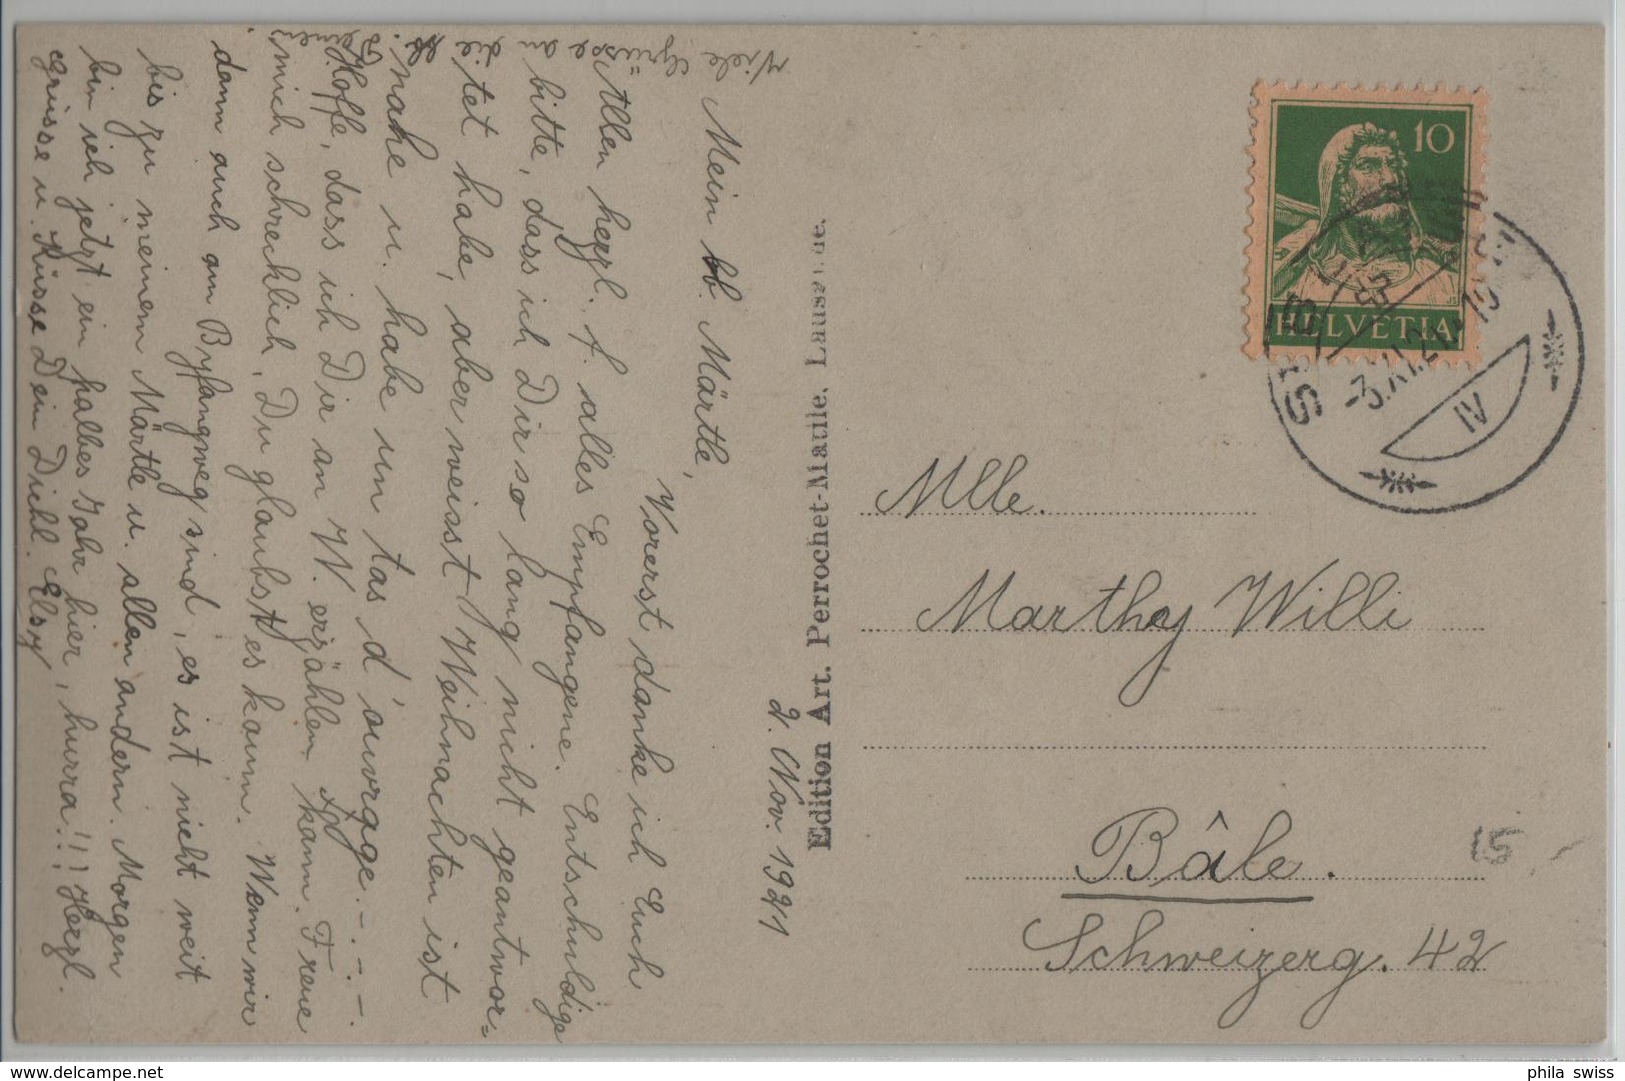 2. Nov. 1921
Mein lb. Märtle,
Vorerst danke ich Euch
Allen herzl. f. alles Empfangene. Entschuldige
bitte, dass ich Dir so lang nicht geantwor=
tet habe, aber weisst Weihnachten ist
nahe u. habe un tas d'ouvrage.-.-.-.-
Hoffe, dass ich Dir an W. erzählen kann. Freue
mich schrecklich, Du glaubst es kaum. Wenn wir
dann auch am Byfangweg sind, es ist nicht weit
bis zu meinem Märtle u. allen andern. Morgen
bin ich jetzt ein halbes Jahr hier, hurra!!! Herzl.
Grüsse u. Küsse Dein Dichl. Elsy
Viele Grüsse an die lb. Deinen
Edition Art. Perrochet-Matile, Lausanne.
10
HELVETIA
IV
Mlle.
Marthy Willi
Bâle.
Schweizerg. 42
15 -
delcampe.net
phila swiss